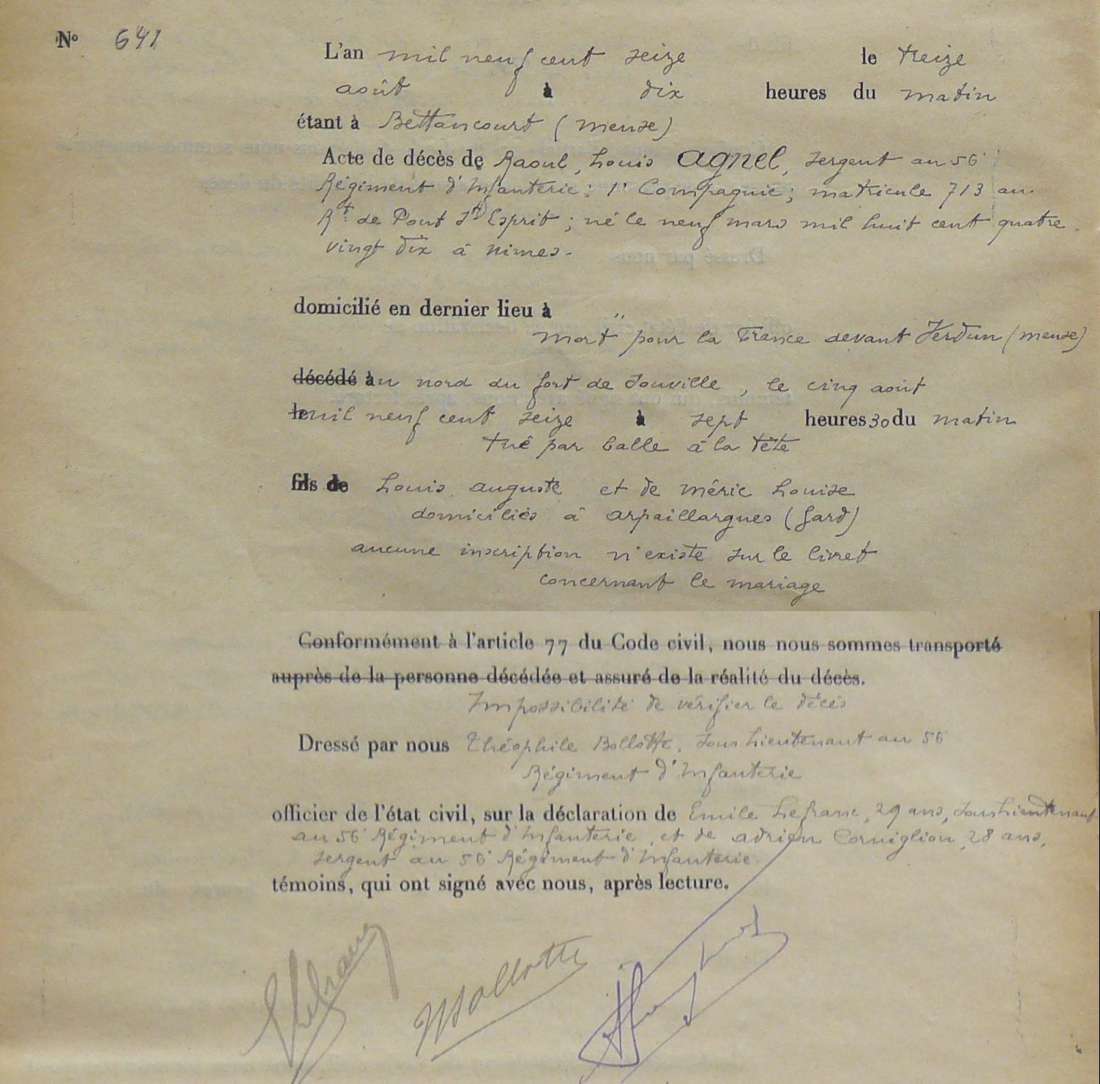 N° 641
L'an mil neuf cent seize le treize
août à dix heures du matin
étant à Bettancourt (Meuse)
Acte de décès de Raoul, Louis Agnel, sergent au 56e
Régiment d'Infanterie; 1e Compagnie; matricule 713 au
Rt de Pont St Esprit; né le neuf mars mil huit cent quatre
vingt dix à Nimes.
domicilié en dernier lieu à "
Mort pour la France devant Verdun (Meuse)
décédé au nord du fort de Souville, le cinq août
le mil neuf cent seize à sept heures 30 du matin
tué par balle à la tête
fils de Louis Auguste et de Méric Louise
domiciliés à Arpaillargues (Gard)
aucune inscription n'existe sur le livret
concernant le mariage
Conformément à l'article 77 du Code civil, nous nous sommes transporté
auprès de la personne décédée et assuré de la réalité du décès.
Impossibilité de vérifier le décès
Dressé par nous Théophile Bollotte, sous lieutenant au 56e
Régiment d'Infanterie
officier de l'état civil, sur la déclaration de Emile Lefranc, 29 ans, sous lieutenant
au 56e Régiment d'Infanterie, et de Adrien Corniglion, 28 ans,
sergent au 56e Régiment d'Infanterie.
témoins, qui ont signé avec nous, après lecture.
Lefranc Bollotte